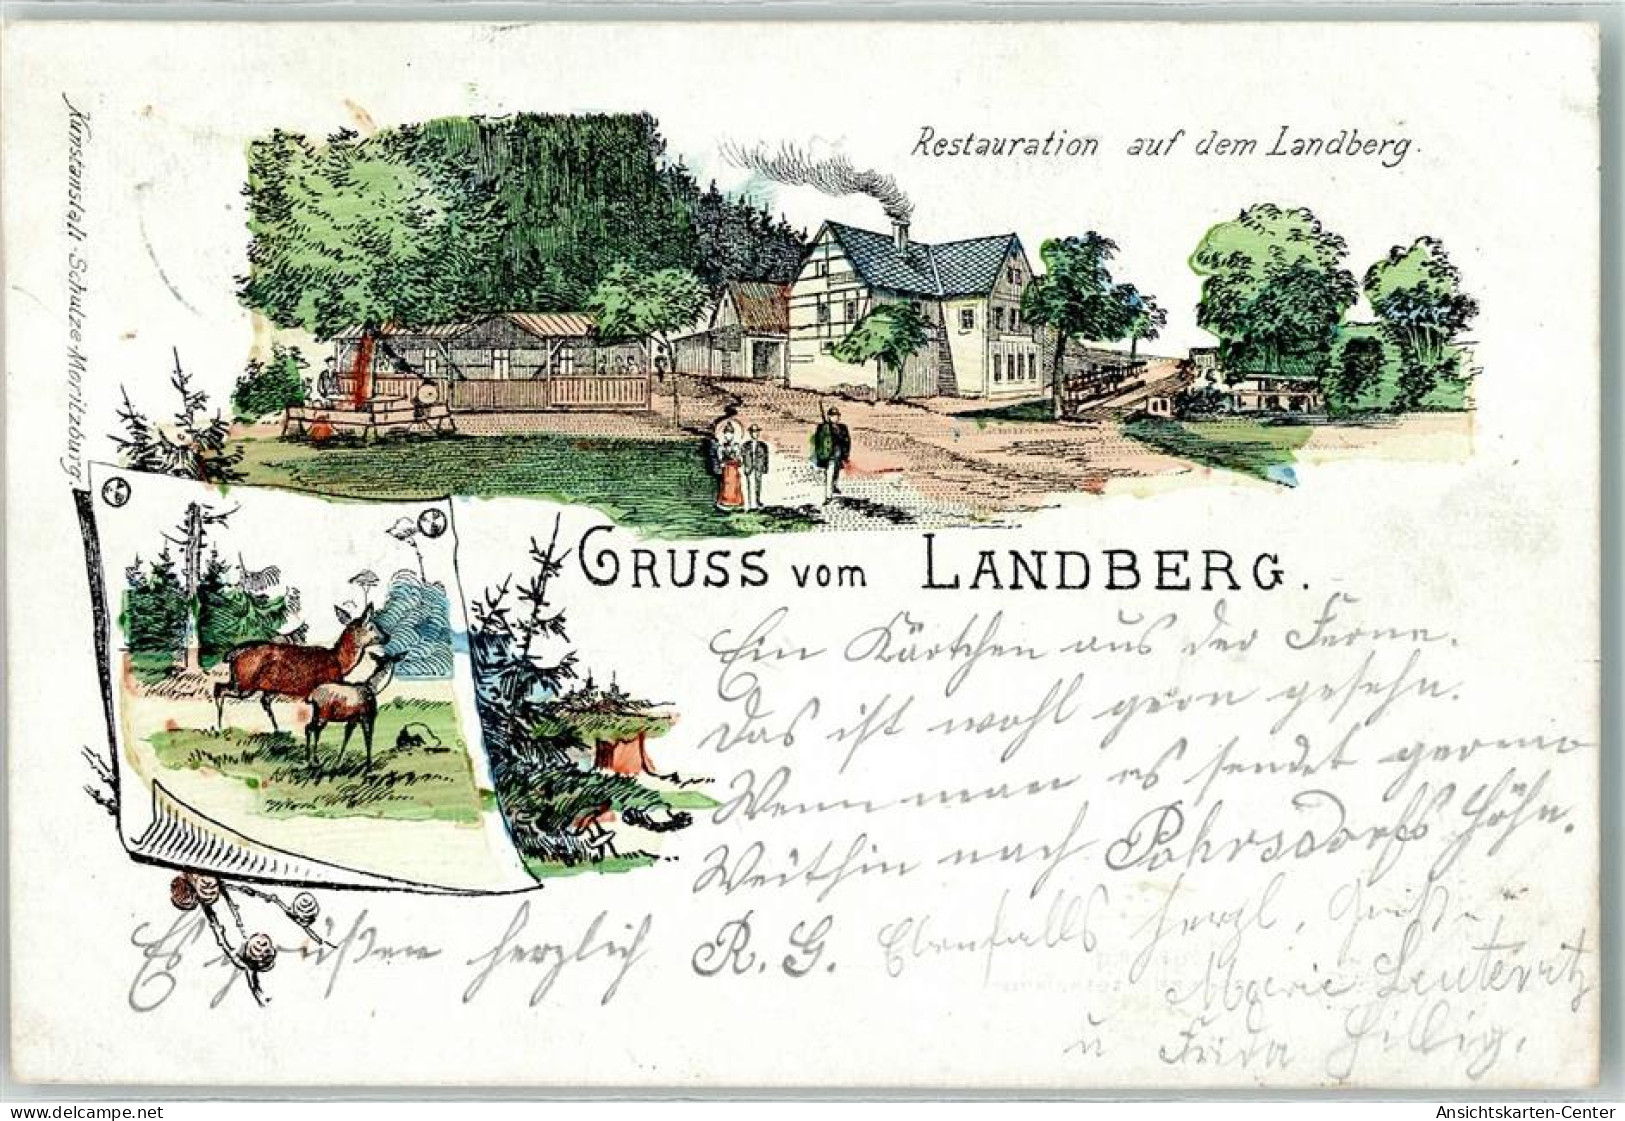 Restauration auf dem Landberg.
Kunstanstalt Schulze Moritzburg.
GRUSS VOM LANDBERG.
Ein Kärtchen aus der Ferne.
Das ist wohl gern gesehn.
Wenn man es sendet gerne
Weithin nach Pohrsdorfs Höhn.
Es grüßen herzlich R. G. Ebenfalls herzl. Grüße
Marie Leuteritz
u Frida Hillig.
delcampe.net
Ansichtskarten-Center